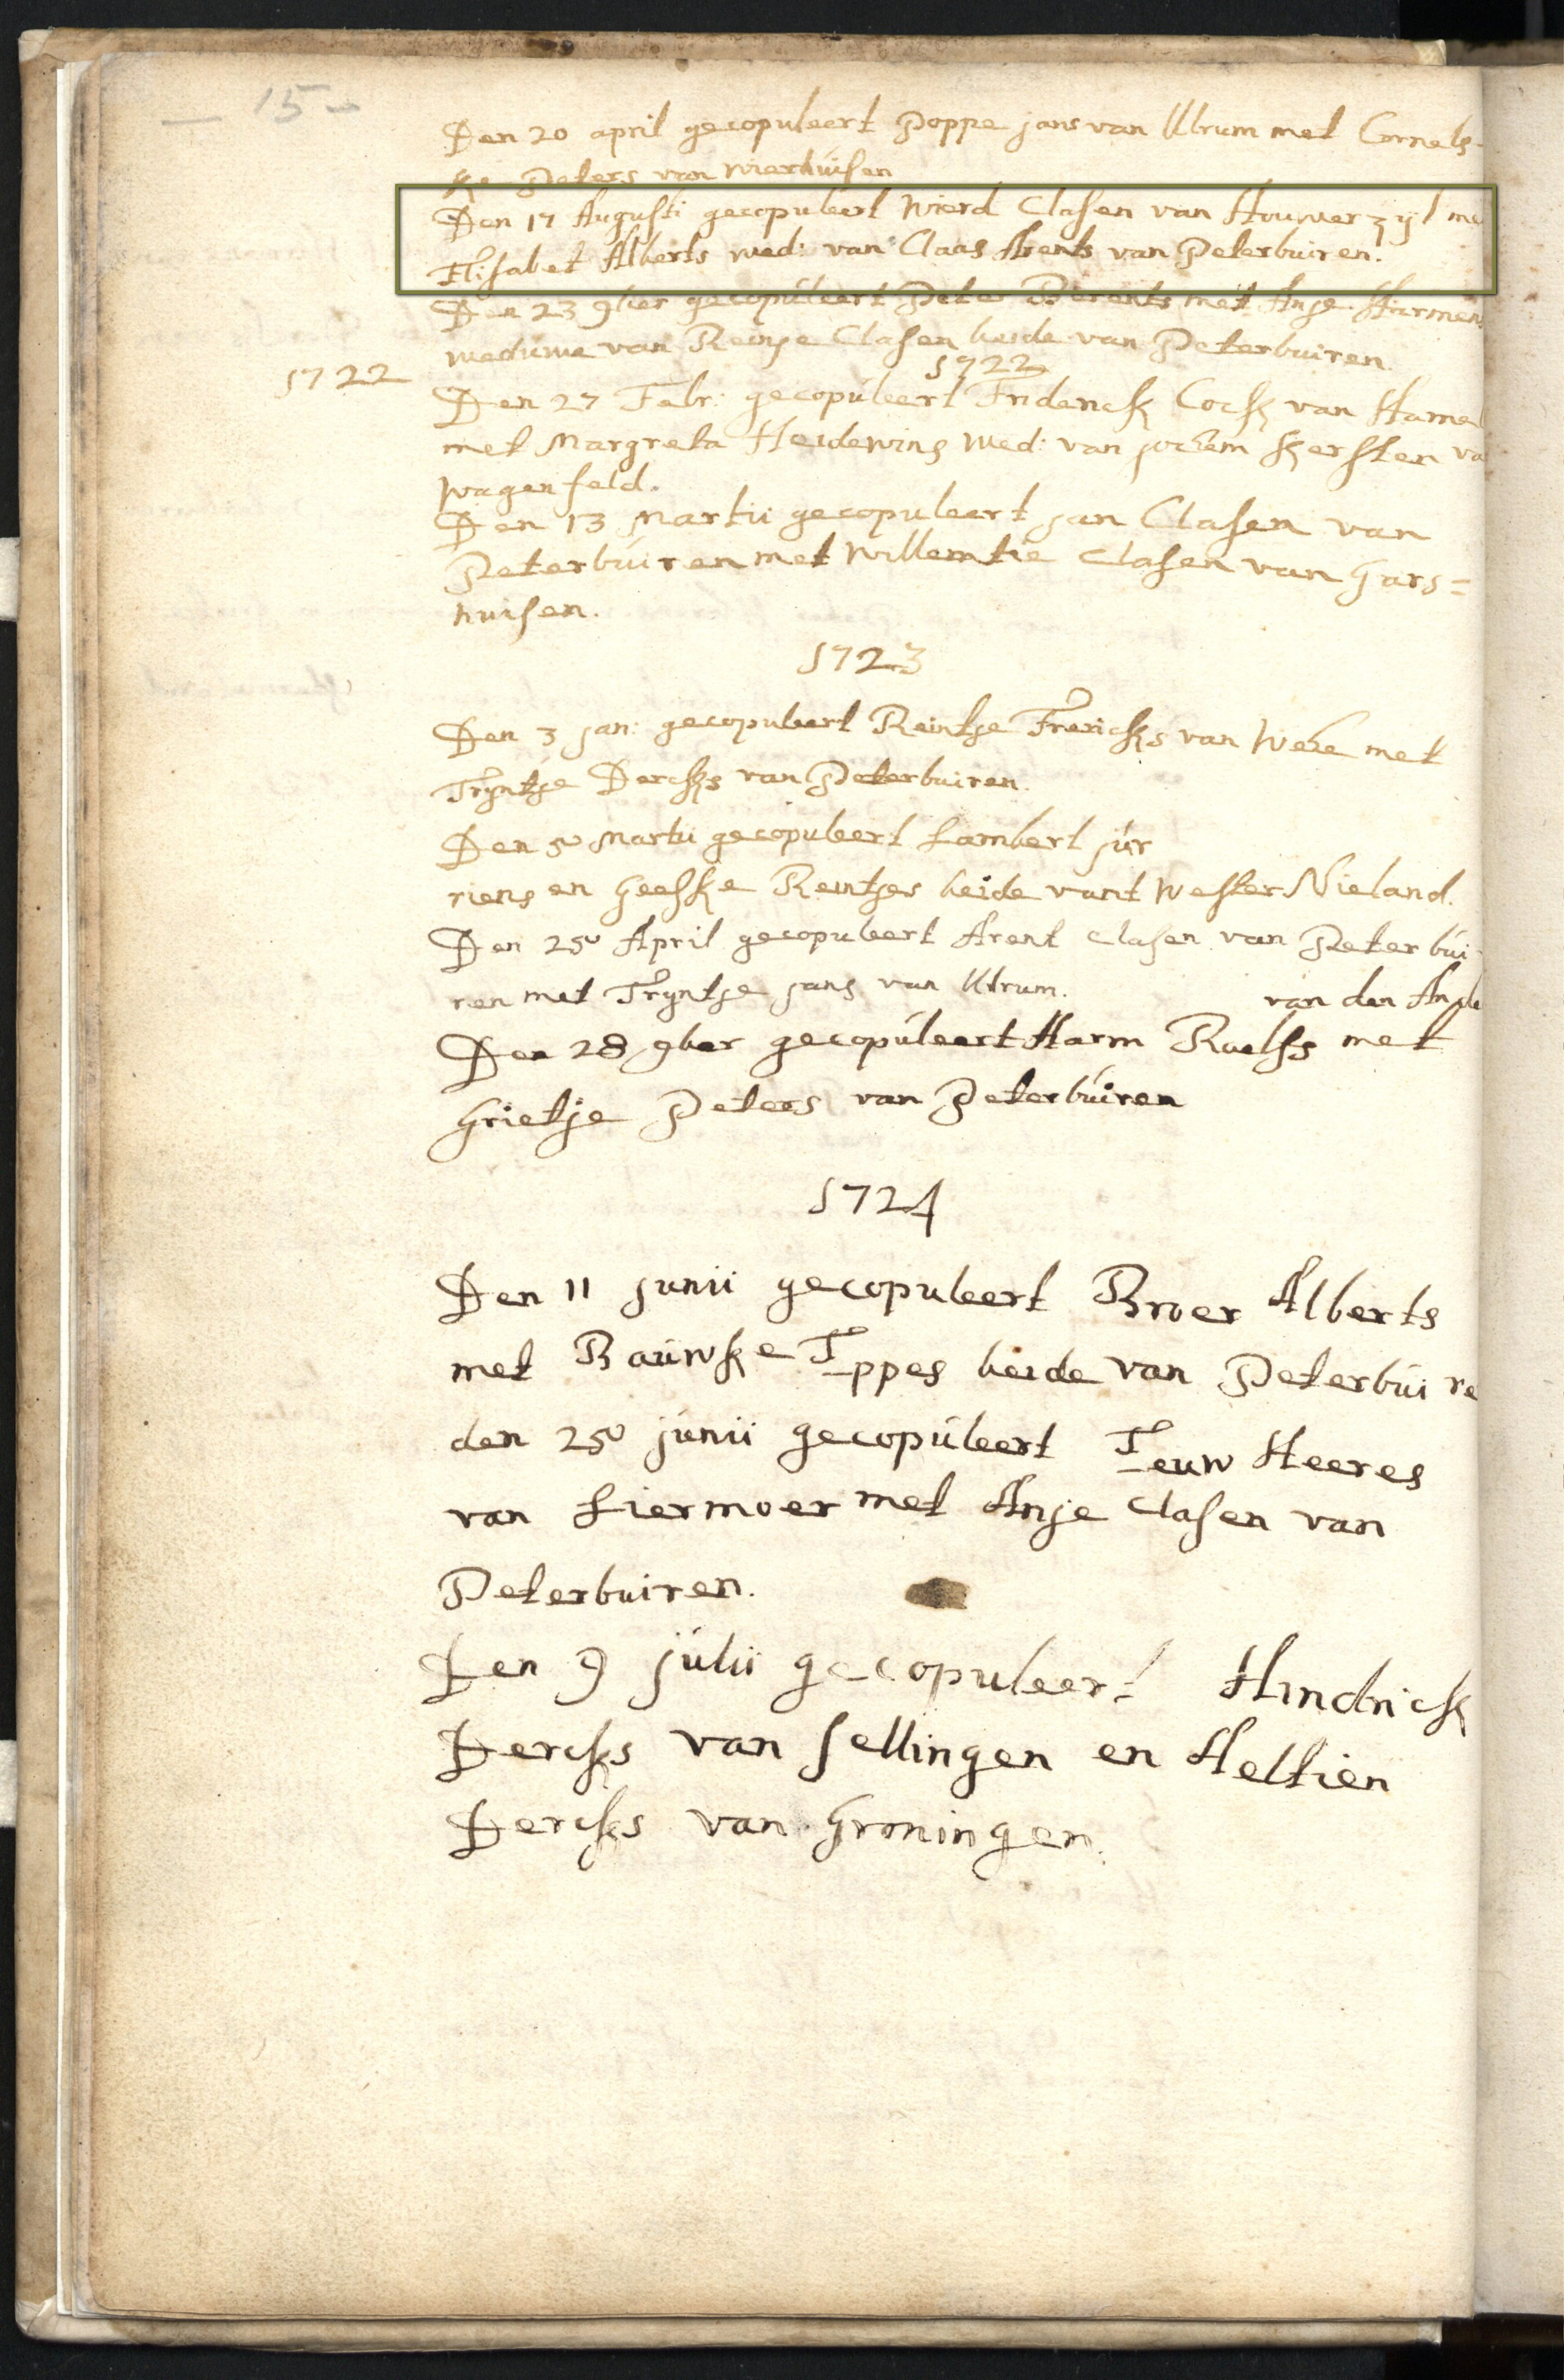 — 15 —
Den 20 april gecopuleert Poppe jans van Ulrum met Cornels-
ke Peters van wierhuisen
Den 17 Augusti gecopuleert Wierd Clasen van Houwerzijl me
Elisabet Alberts wed: van Claas Arents van Peterbuiren.
Den 23 9ber gecopuleert Peter Berents met Anje Harmens
weduwe van Reinje Clasen beide van Peterbuiren.
1722
1722
Den 27 Febr: gecopuleert Friderick Cock van Hamel
met Margreta Heidewins wed: van jochem Kersten va
wagenfeld.
Den 13 Martii gecopuleert jan Clasen van
Peterbuiren met Willemtie Clasen van Gars=
huisen.
1723
Den 3 jan: gecopuleert Reintje Frericks van Wehe met
Tryntje Dercks van Peterbuiren.
Den 5 Martii gecopuleert Lambert jur
riens en Geeske Reintjes beide vant Wester Nieland.
Den 25 April gecopuleert Arent Clasen van Peterbui-
ren met Tryntje jans van Ulrum.
van den Ande
Den 28 9ber gecopuleert Harm Roelfs met
Grietje Peters van Peterbuiren
1724
Den 11 junii gecopuleert Broer Alberts
met Bauwke Eppes beide van Peterbuire
den 25 junii gecopuleert Teuw Heeres
van Liermoer met Anje Clasen van
Peterbuiren.
Den 9 julii gecopuleert Hindrick
Dercks van Sellingen en Heltien
Dercks van Groningen.